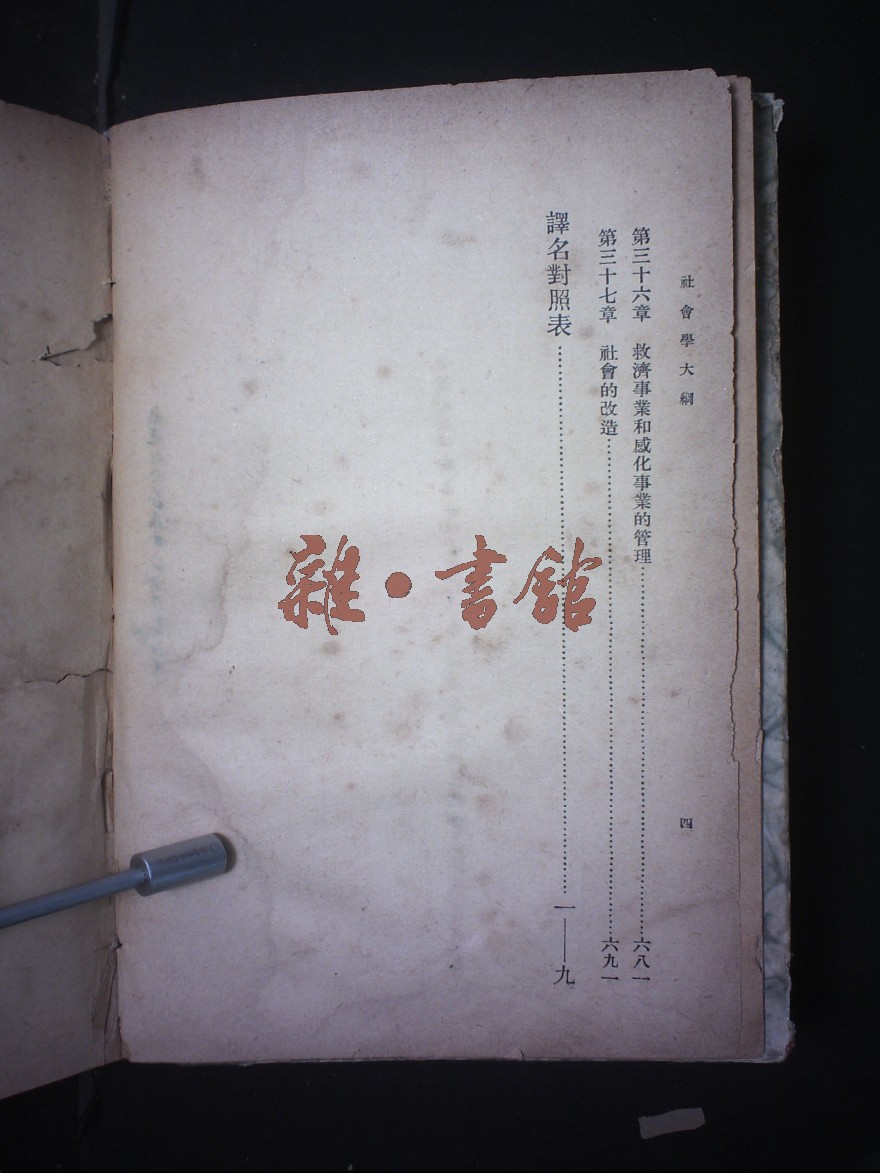 社會學大綱
四
第三十六章　救濟事業和感化事業的管理……六八一
第三十七章　社會的改造……六九一
譯名對照表……一——九
雜·書館